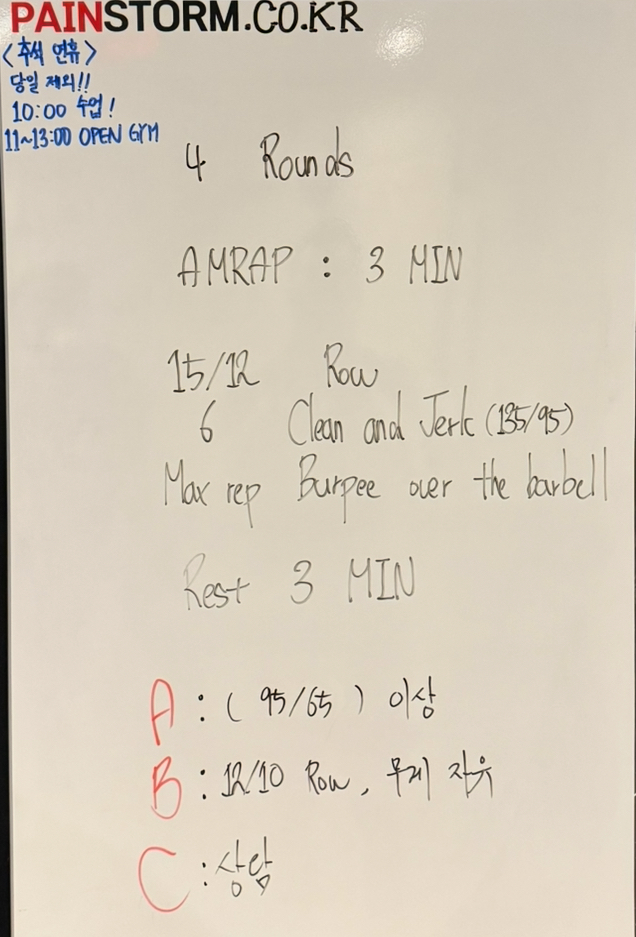 PAINSTORM.CO.KR
<추석 연휴>
당일 제외!!
10:00 수업!
11~13:00 OPEN GYM
4 Rounds
AMRAP : 3 MIN
15/12 Row
6 Clean and Jerk (135/95)
Max rep Burpee over the barbell
Rest 3 MIN
A : ( 95/65 ) 이상
B : 12/10 Row, 무게 자유
C : 상담